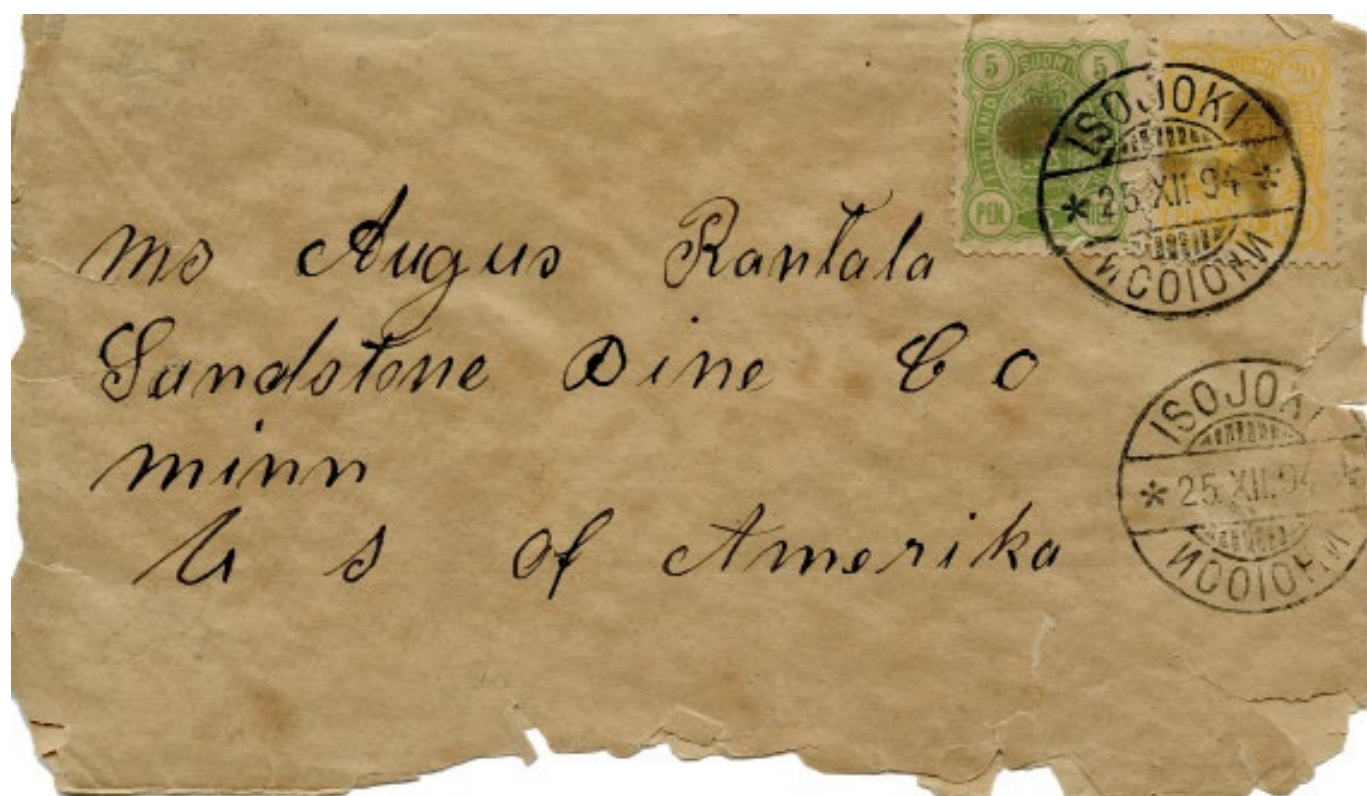 5 SUOMI 5
FINLAND
PEN.
SUOMI 20
ISOJOKI
* 25.XII.94 *
ИСОІОКИ
Ms Augus Rantala
Sandstone Pine Co
minn
U s of Amerika
ISOJOKI
* 25.XII.94 *
ИСОІОКИ